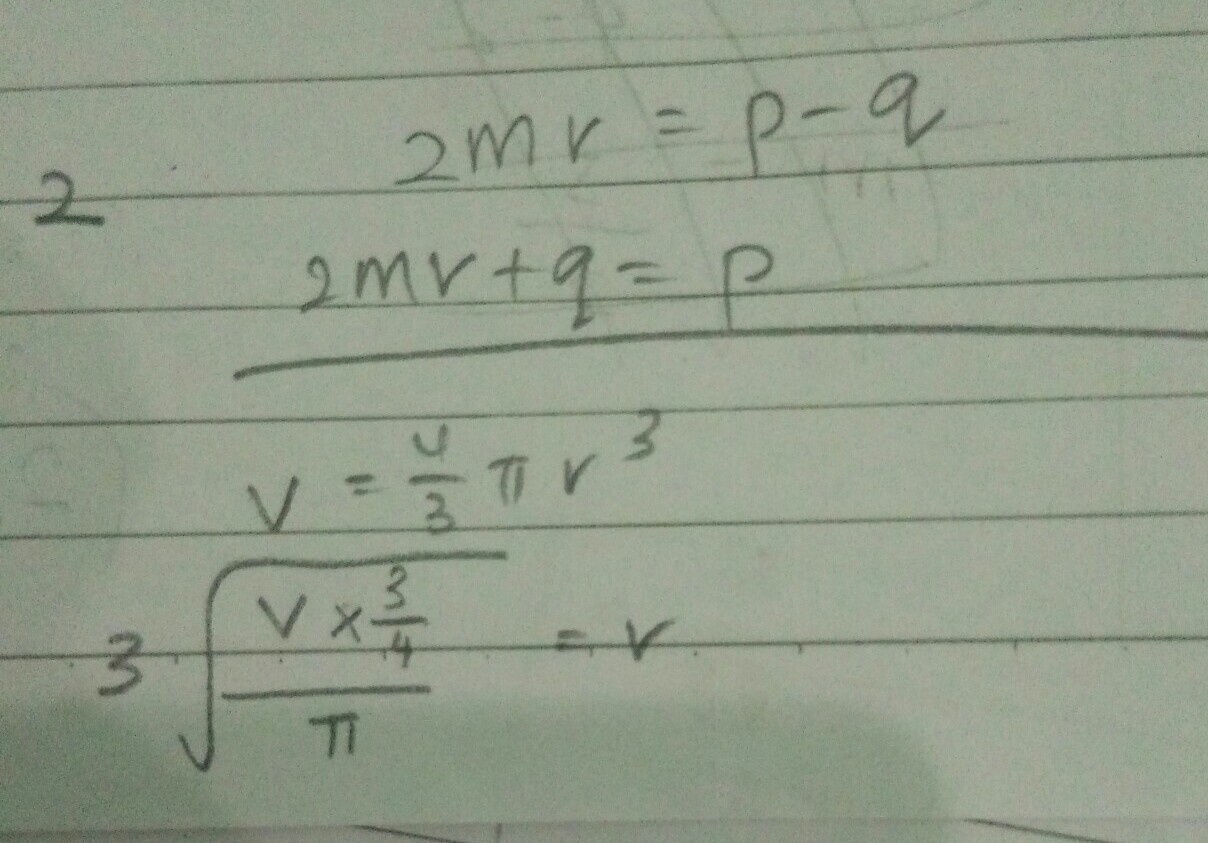 2mr = p - q
2
2mr + q = p
V = 4/3 π r³
3 √((V × 3/4)/π) = r